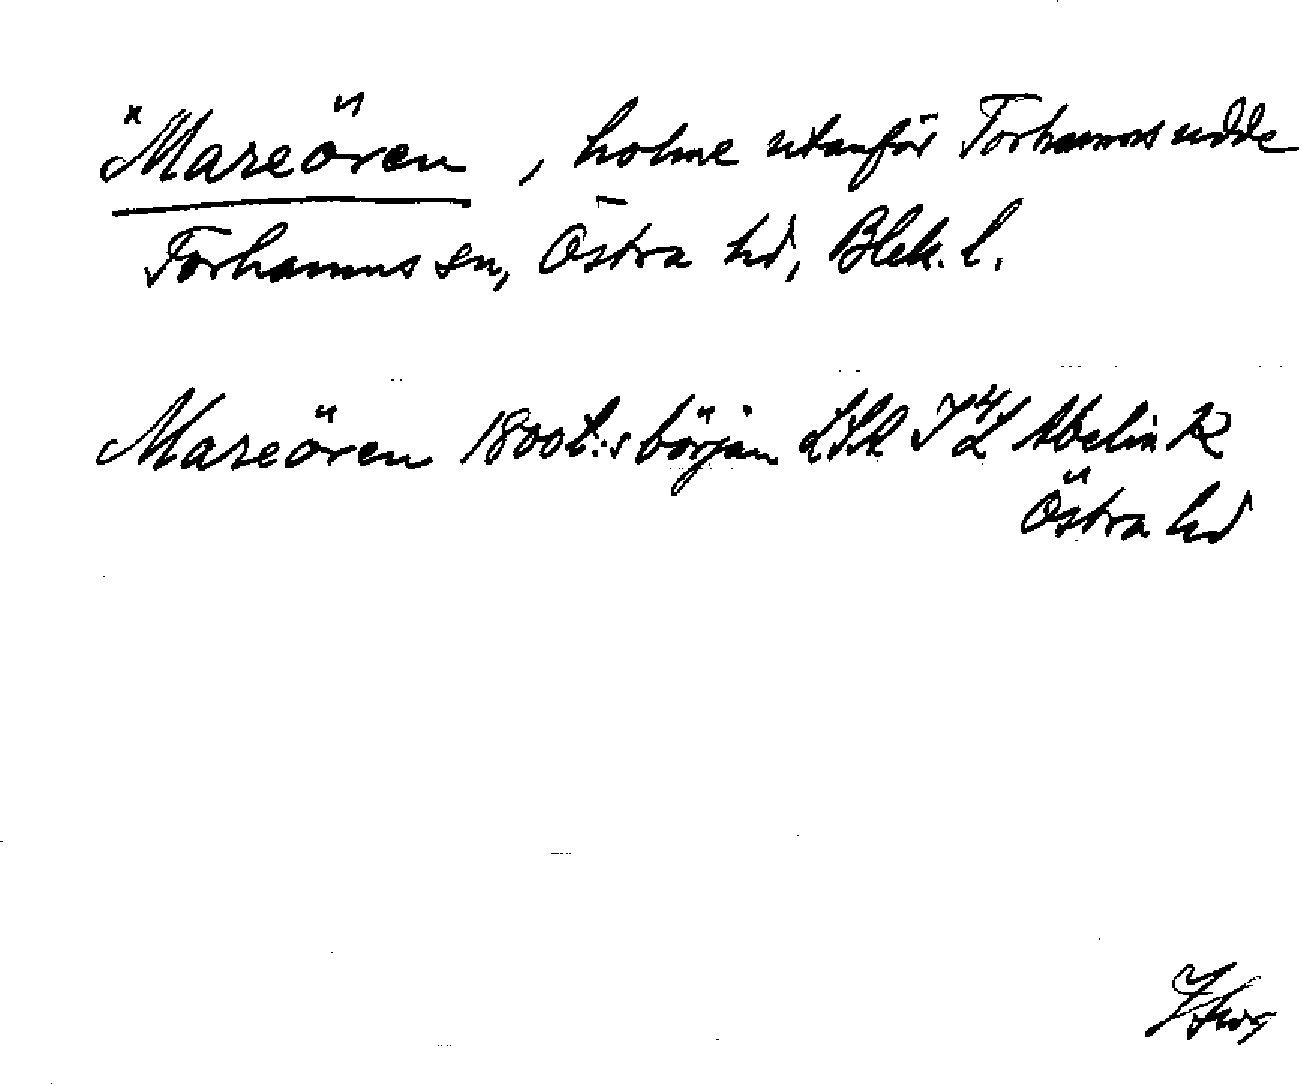 *Mareören, holme utanför Torhamns udde
Torhamns sn, Östra hd, Blek. l.
Mareören 1800t:s början LSA Abelin K
Östra hd